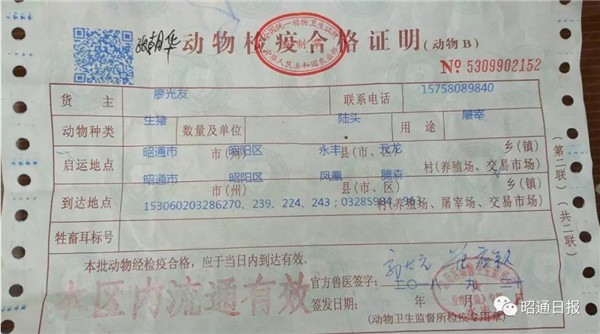 动物检疫合格证明(动物B)
№ 5309902152
货主 廖光友 联系电话 15758089840
动物种类 生猪 数量及单位 陆头 用途 屠宰
启运地点 昭通市 市(州) 昭阳区 永丰 县(市、区) 元龙 乡(镇)
村(养殖场、交易市场)
到达地点 昭通市 市(州) 昭阳区 凤凰 县(市、区) 腾森 乡(镇)
153060203286270、239、224、243;03285984、963 村(养殖场、屠宰场、交易市场)
牲畜耳标号
本批动物经检疫合格,应于当日内到达有效。
官方兽医签字:
签发日期: 二〇一八年 九月 二十
(动物卫生监督所检疫专用章)
本区内流通有效
(第二联)
(共二联)
昭通日报